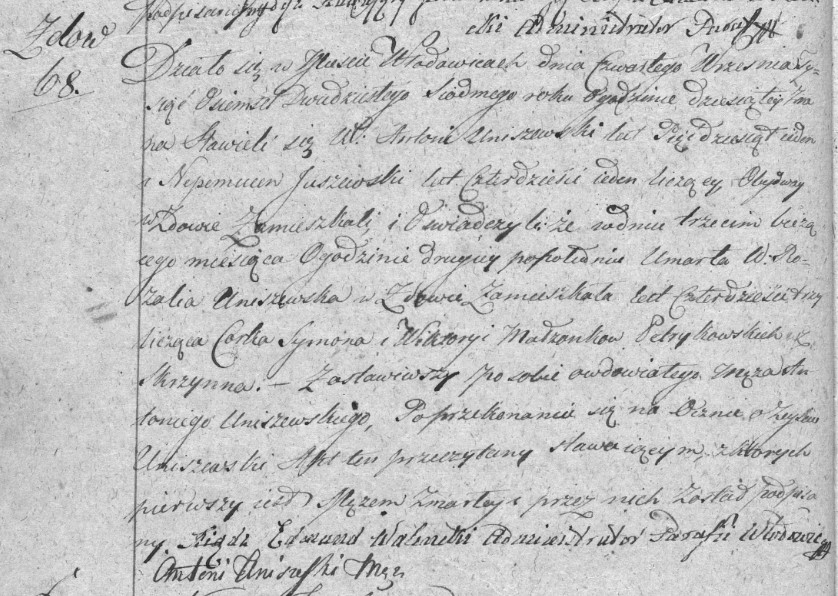 cki Administrator Parafii
Zdow
68.
Działo się w Mieście Włodowicach dnia Czwartego Wrzesnia Ty-
siąć Osiemset Dwudziestego Siodmego roku O godzinie dziesiątey z ra
na Stawieli się W: Antoni Uniszewski lat Pięćdziesiąt ieden
i Nepomucen Juszewski lat Czterdzieści ieden liczący, Obydway
w Zdowie Zamieszkali i Oswiadczyli: że w dniu trzecim bieżą
cego miesiąca O godzinie drugiey popołudniu Umarła W. Ro-
zalia Uniszewska w Zdowie Zamieszkała lat Czterdzieści trzy
licząca Corka Symona i Wiktoryi Małżonkow Petrykowskich z
Skrzynna. – Zostawiwszy po sobie owdowiałego Męża An
toniego Uniszewskiego, Po przekonaniu się na Ocznie o Zeyściu
Uniszewski Akt ten przeczytany stawaiącym, z ktorych
pierwszy iest Mężem Zmarłey i przez nich Został podpisa
ny. Xiądz Edmund Administrator Parafii Włodowic
Antoni Uniszefski Mąż